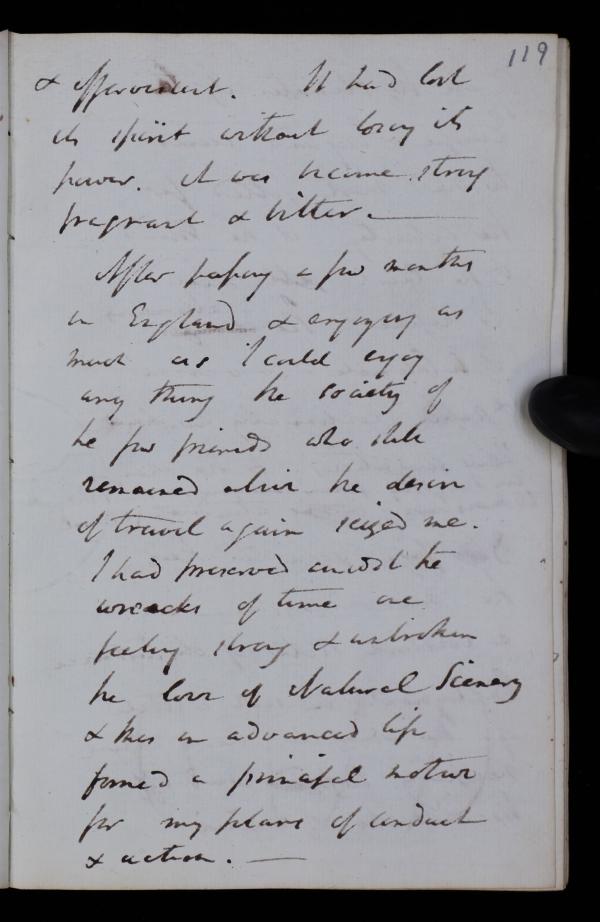 119
& effervescent. It had lost
its spirit without losing its
power. it was become strong
fragrant & bitter. —
After passing a few months
in England & enjoying as
much as I could enjoy
any thing the society of
the few friends who still
remained alive the desire
of travel again seized me.
I had preserved amidst the
wrecks of time one
feeling strong & unbroken
the love of Natural Scenery
& this in advanced life
formed a principal motive
for my plans of conduct
& action. —